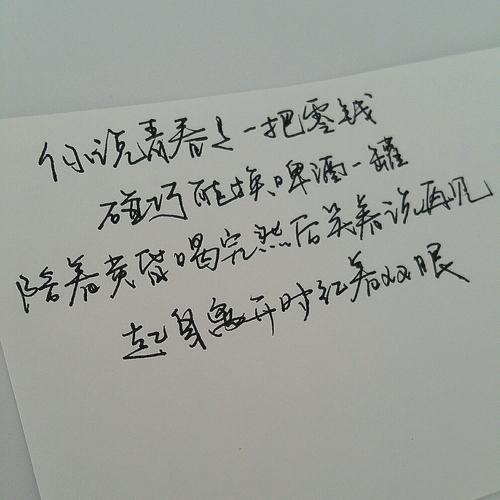 你说青春是一把零钱
碰巧能换啤酒一罐
陪着黄昏喝完然后笑着说再见
起身离开时红着双眼